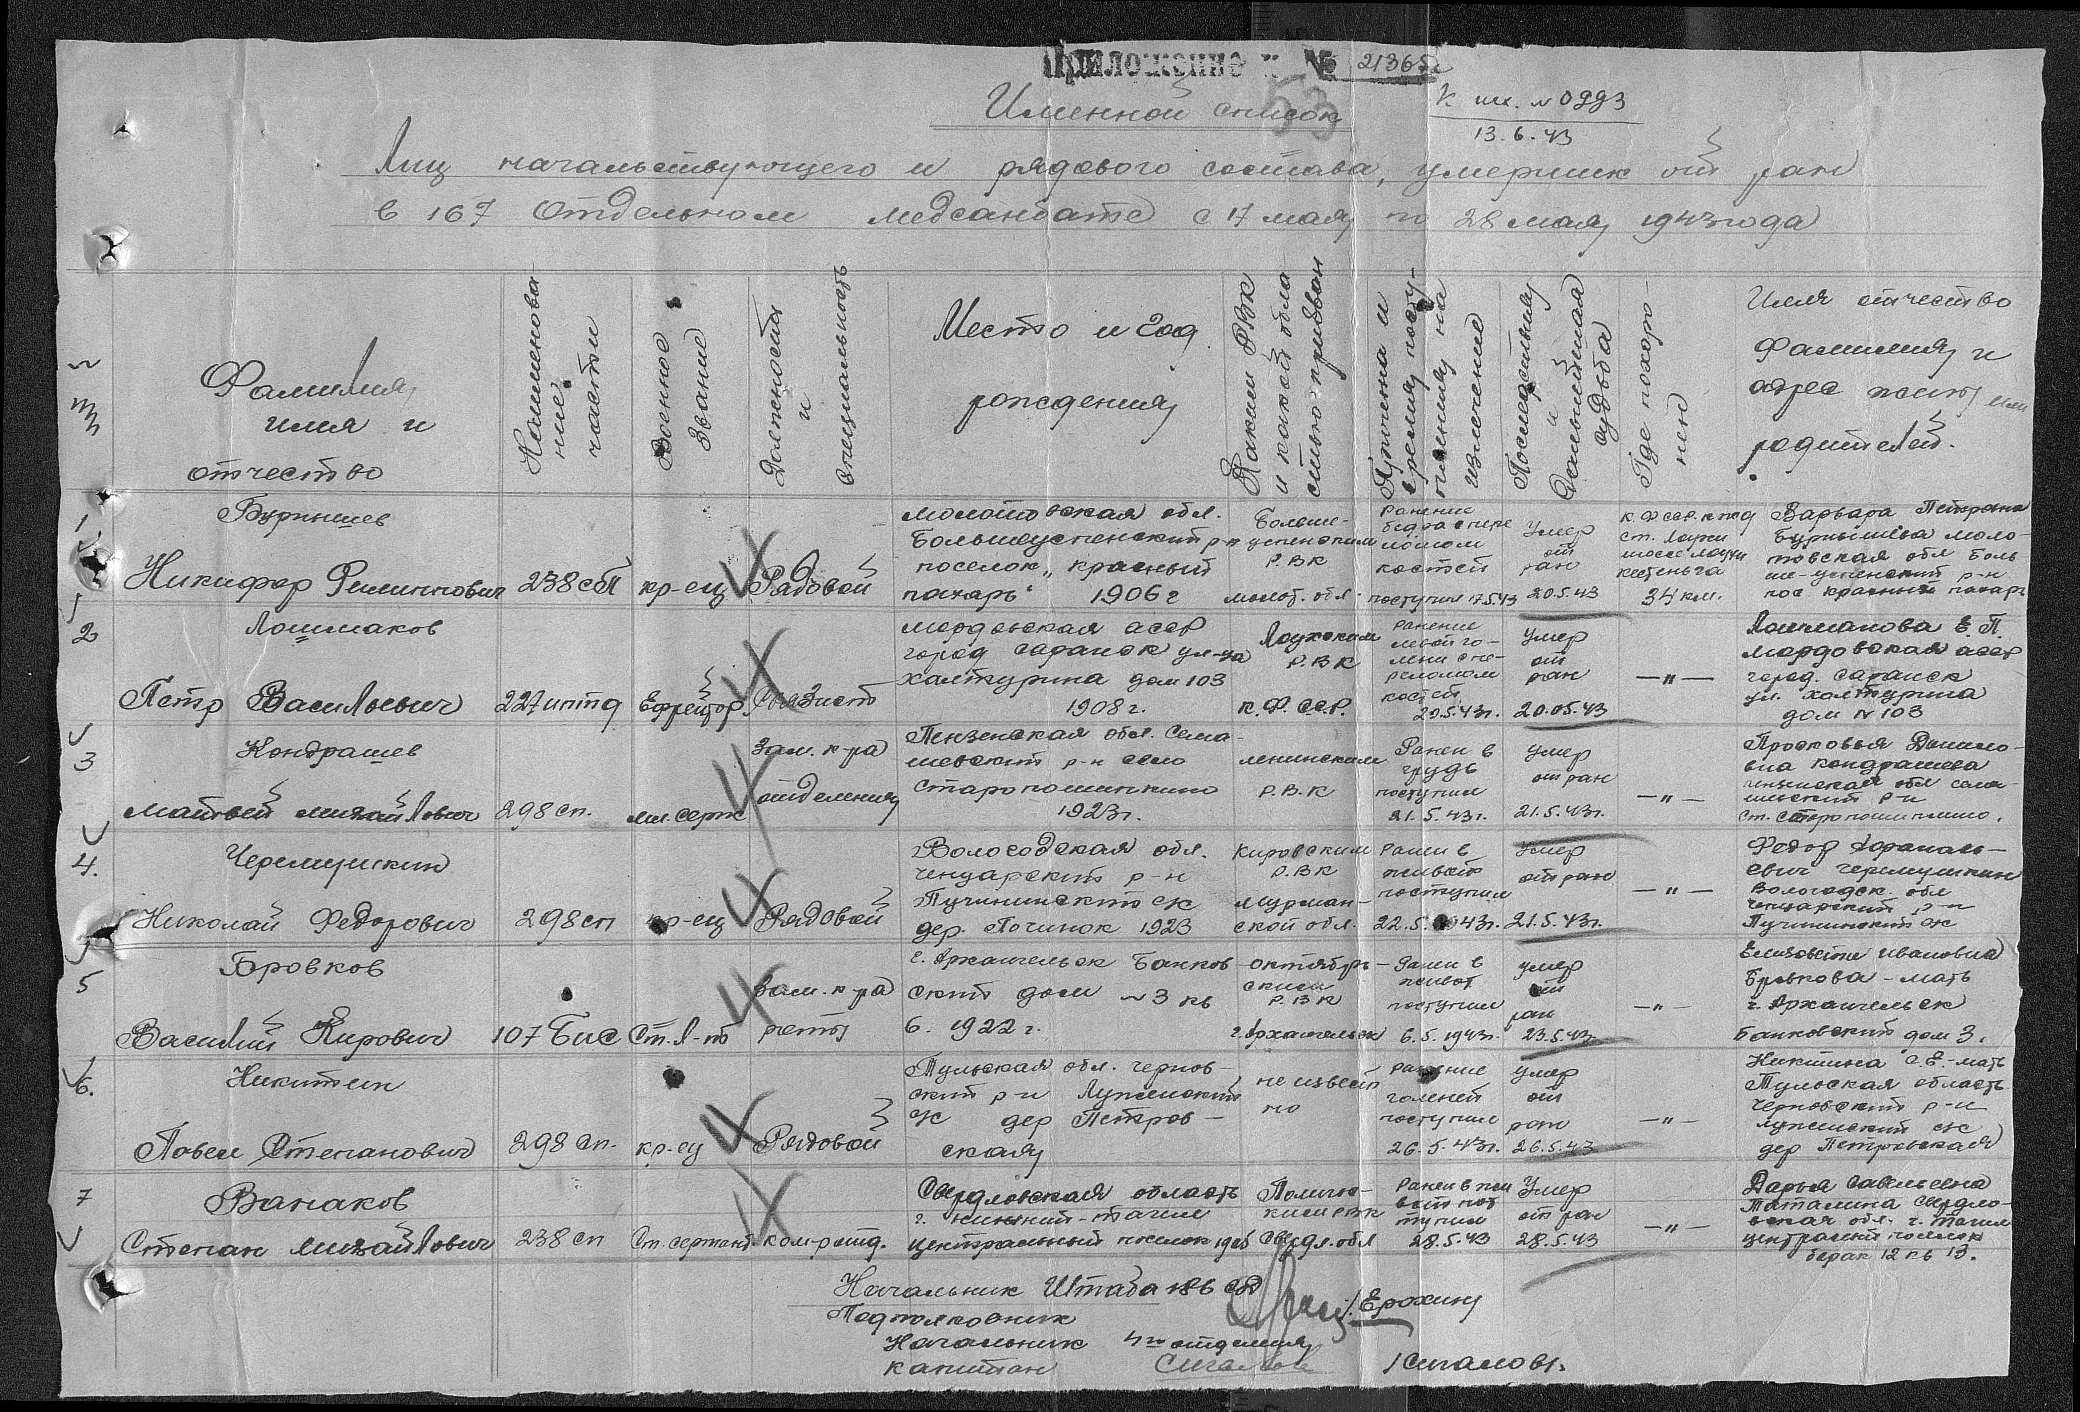 Приложение к № 21365с
53
Именной список
К вх. № 0993
13.6.43
Лиц начальствующего и рядового состава, умерших от ран
в 167 Отдельном медсанбате с 17 мая по 28 мая 1943 года
Фамилия, имя и отчество
Наименование части
Военное звание
Должность и специальность
Место и год рождения
Каким РВК и какой области призван
Причина и время поступления на излечение
Последствия и дальнейшая судьба
Где похоронен
Имя отчество фамилия и адрес жены или родителей.
1.
Бурнышев
Никифор Филиппович
238 сп
кр-ец
Рядовой
Молотовская обл.
Большеуспенский р-н
поселок „красный
пахарь" 1906 г
Больше-
успенским
Р.В.К
молот. обл.
Ранение
бедра с пере
ломом
костей
поступил 17.5.43
Умер
от
ран
20.5.43
К.Ф ССР. к жд
ст. Лоухи
шоссе Лоухи
Кестеньга
34 км.
Варвара Петровна
Бурнышева моло-
товская обл Боль
ше-успенский р-н
пос красный пахарь
2
Лошмаков
Петр Васильевич
227 иптд
Ефрейтор
Связист
Мордовская асср
город саранск ул-ца
халтурина дом 103
1908 г.
Лоухским
Р.В.К
К.Ф.С.С.Р.
Ранение
левой го-
лени с пе-
реломом
костей
20.5.43г.
Умер
от
ран
20.05.43
—„—
Лошмакова Е.П.
мордовская асср
город. саранск
ул. халтурина
дом № 103
3
Кондрашев
Матвей михайлович
298 сп.
мл. серж
Зам. к-ра
отделения
Пензенская обл.
р-н село
Старопошипкино
1923г.
ленинским
Р.В.К
Ранен в
грудь
поступил
21.5.43г.
умер
от ран
21.5.43г.
—„—
Просковья Данило-
вна Кондрашева
пензенская обл
р-н
4.
Черемушкин
Николай Федорович
298 сп
кр-ец
Рядовой
Вологодская обл.
р-н
с/с
дер. Починок 1923
Кировским
Р.В.К
мурман-
ской обл.
ранен в
живот
поступил
22.5.43г.
умер
от ран
21.5.43г.
—„—
Федор
евич черемушкин
Вологодск. обл
р-н
с/с
5
Бровков
Василий Кирович
107 Бис
Ст. Л-нт
Зам. к-ра
роты
г. Архангельск Банков-
ский дом № 3 кв
6. 1922 г.
октябрь-
ским
Р.В.К
г. Архангельск
Ранен в
живот
поступил
6.5.1943г.
умер
от
ран
23.5.43
—„—
Елизовета ивановна
Бровкова - мать
г. Архангельск
Банковский дом 3.
6.
Никитин
Повел Степанович
298 сп.
кр-ец
Рядовой
Тульская обл. чернов-
ский р-н Лужинский
с/с дер Петров-
ская
не извест
но
ранение
голеней
поступил
26.5.43г.
умер
от
ран
26.5.43
—„—
Никитина С.Е.-мать
Тульская область
Черновский р-н
лужинский с/с
дер Петровская
7
Ванаков
Степан михайлович
238 сп
Ст. сержант
ком-р отд.
Свердловская область
г. нижний-тагил
центральный поселок
РВК
Свердл. обл
Ранен в жи
вот пос
тупил
28.5.43
Умер
от ран
28.5.43
—„—
Дарья савельевна
Свердло-
вская обл. г. тагил
централни поселок
барак 12 кв 13.
Начальник Штаба 186 сд
Подполковник /Ерохин/
Начальник 4го отделения
капитан Сигалов /Сигалов/.